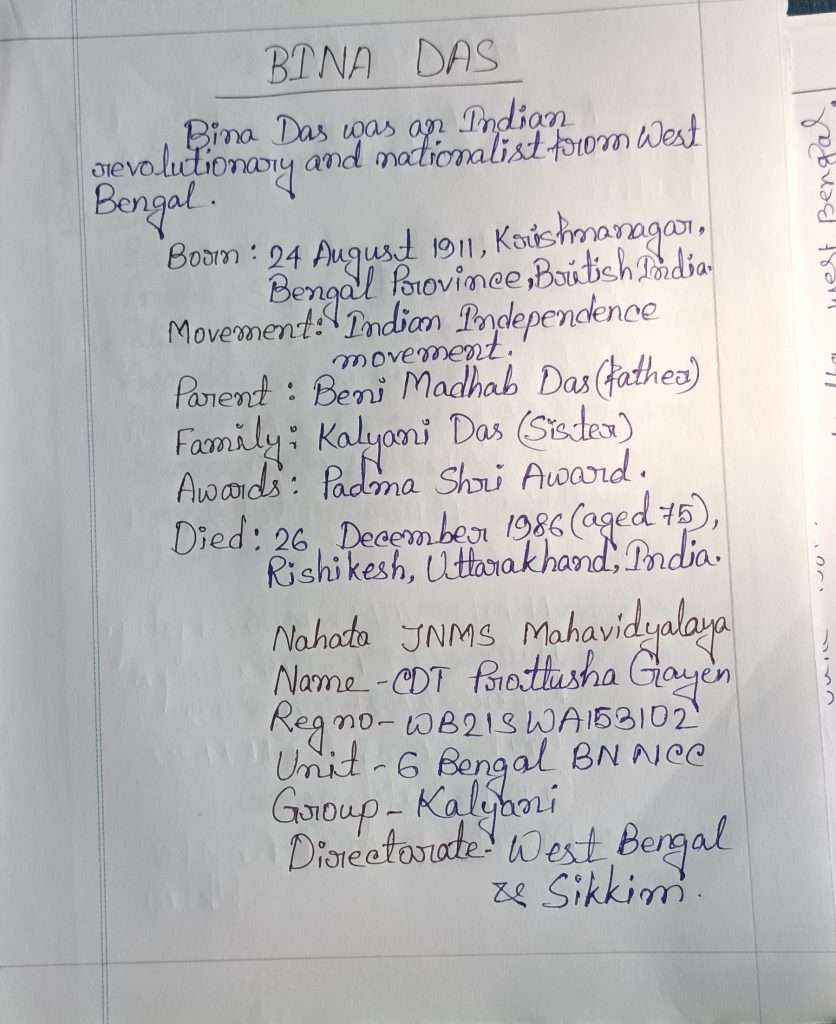 BINA DAS
Bina Das was an Indian
revolutionary and nationalist from West
Bengal.
Born : 24 August 1911, Krishnanagar,
Bengal Province, British India.
Movement: Indian Independence
movement.
Parent : Beni Madhab Das (father)
Family : Kalyani Das (Sister)
Awards : Padma Shri Award.
Died : 26 December 1986 (aged 75),
Rishikesh, Uttarakhand, India.
Nahata JNMS Mahavidyalaya
Name - CDT Prattusha Gayen
Reg no - WB21SWA153102
Unit - 6 Bengal BN NCC
Group - Kalyani
Directorate - West Bengal
& Sikkim.
West Bengal,
West Bengal